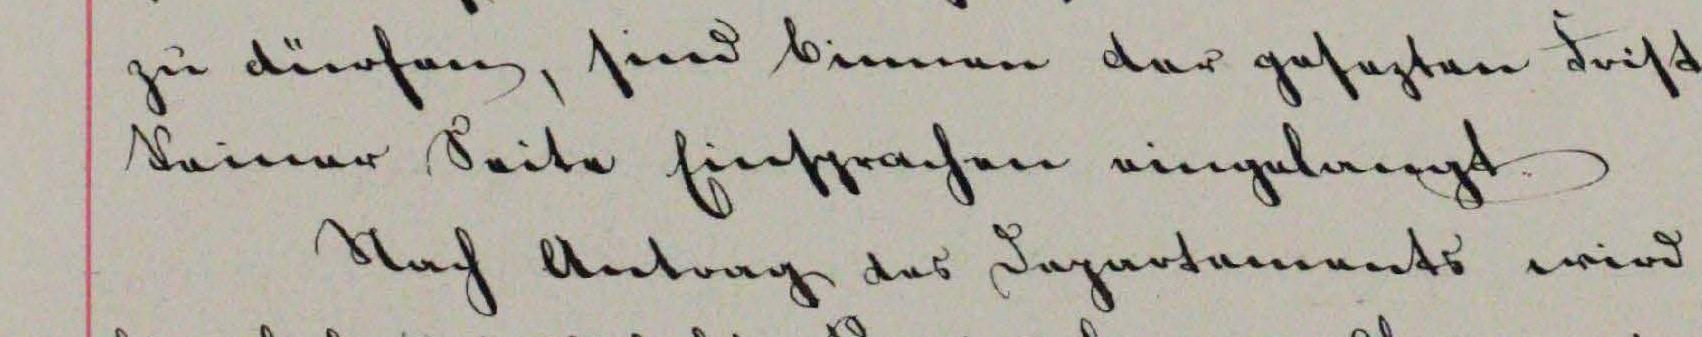 zu dürfen, sind binnen der gesezten Frist
keiner Seite Einsprachen eingelangt.
Nach Antrag des Departements wird